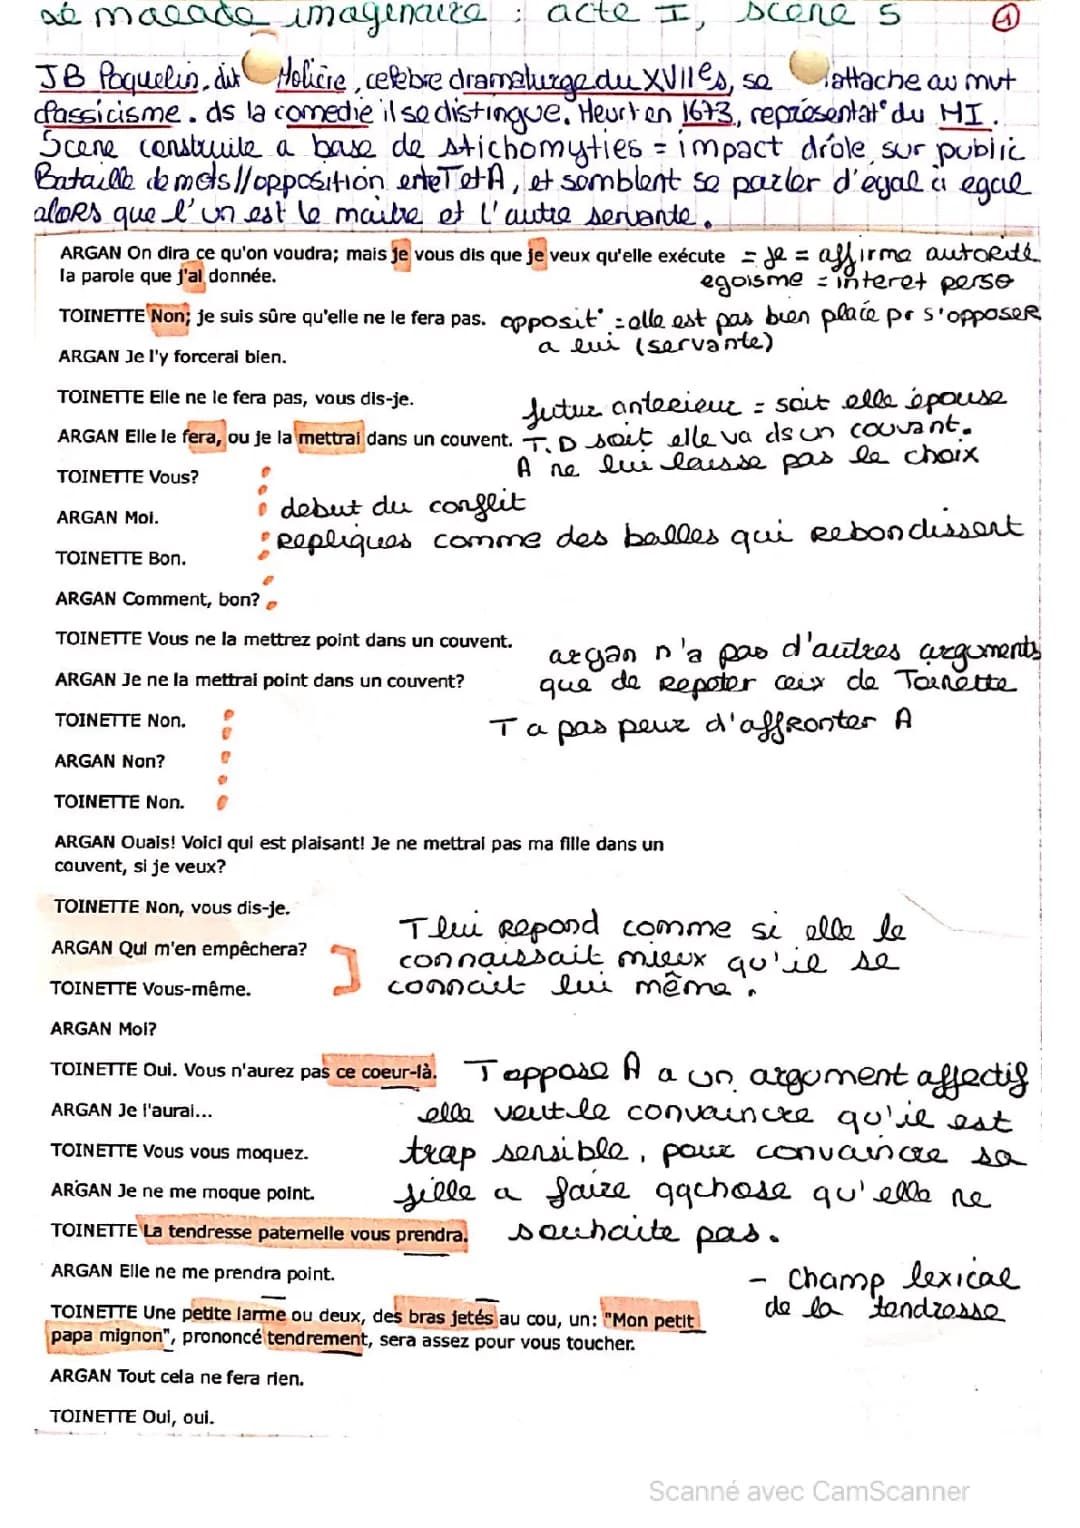 Le malade imaginaire : acte I, scene 5 ①
JB Poquelin, dit Molière, celebre dramaturge du XVIIes, se rattache au mvt
classicisme. ds la comedie il se distingue. Meurt en 1673, représentat° du MI.
Scene construite a base de stichomyties = impact drôle sur public
Bataille de mots // opposition entre T et A, et semblent se parler d'egal à egal
alors que l'un est le maitre et l'autre servante.
ARGAN On dira ce qu'on voudra; mais je vous dis que je veux qu'elle exécute = je = affirme autorité
la parole que j'ai donnée. egoïsme = interet perso
TOINETTE Non; je suis sûre qu'elle ne le fera pas. opposit° = elle est pas bien placée pr s'opposer
a lui (servante)
ARGAN Je l'y forcerai bien.
TOINETTE Elle ne le fera pas, vous dis-je.
futur anterieur = soit elle épouse
ARGAN Elle le fera, ou je la mettrai dans un couvent. T.D soit elle va ds un couvant.
A ne lui laisse pas le choix
TOINETTE Vous?
debut du conflit
ARGAN Moi.
repliques comme des balles qui rebondissent
TOINETTE Bon.
ARGAN Comment, bon?
TOINETTE Vous ne la mettrez point dans un couvent.
argan n'a pas d'autres arguments
ARGAN Je ne la mettrai point dans un couvent? que de repeter ceux de Toinette
TOINETTE Non. T a pas peur d'affronter A
ARGAN Non?
TOINETTE Non.
ARGAN Ouais! Voici qui est plaisant! Je ne mettrai pas ma fille dans un
couvent, si je veux?
TOINETTE Non, vous dis-je.
T lui repond comme si elle le
ARGAN Qui m'en empêchera? connaissait mieux qu'il se
TOINETTE Vous-même. connait lui même.
ARGAN Moi?
TOINETTE Oui. Vous n'aurez pas ce coeur-là. T oppose A a un argument affectif
ARGAN Je l'aurai... elle veut le convaincre qu'il est
TOINETTE Vous vous moquez. trop sensible, pour convaincre sa
ARGAN Je ne me moque point. fille a faire qqchose qu'elle ne
TOINETTE La tendresse paternelle vous prendra. souhaite pas.
ARGAN Elle ne me prendra point. - champ lexical
de la tendresse
TOINETTE Une petite larme ou deux, des bras jetés au cou, un: "Mon petit
papa mignon", prononcé tendrement, sera assez pour vous toucher.
ARGAN Tout cela ne fera rien.
TOINETTE Oui, oui.
Scanné avec CamScanner